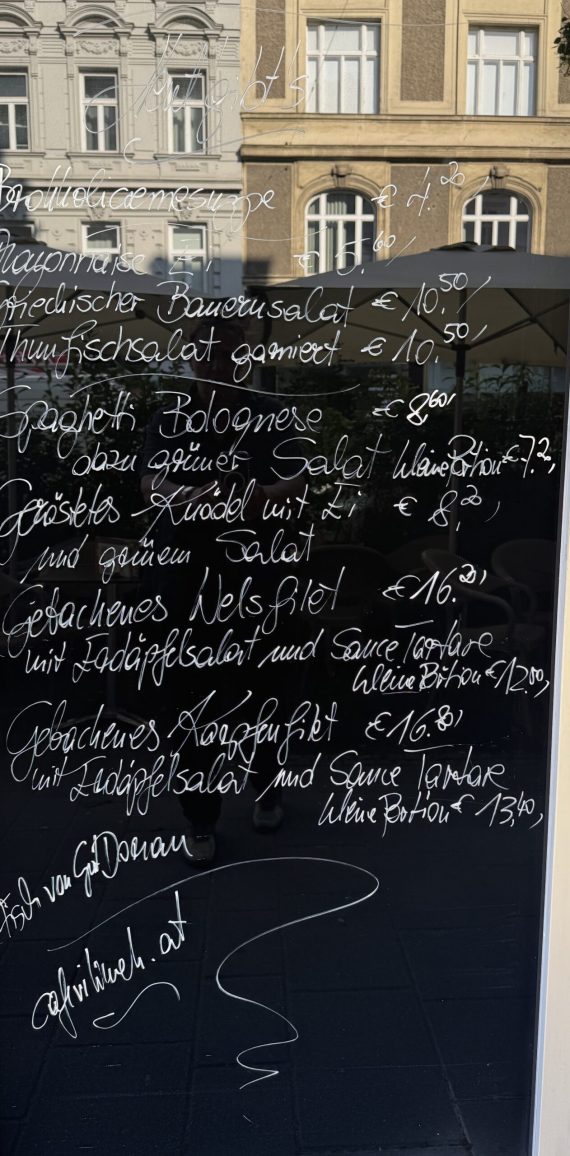 Heut gibt's
Brokkolicremesuppe € 4.20
Mayonnaise Ei € 5.60
Griechischer Bauernsalat € 10.50
Thunfischsalat garniert € 10.50
Spaghetti Bolognese € 8.60
dazu grüner Salat kleine Portion € 7.2
Geröstetes Knödel mit Ei € 8.20
und grünem Salat
Gebackenes Welsfilet € 16.20
mit Erdäpfelsalat und Sauce Tartare
kleine Portion € 12.50,
Gebackenes Karpfenfilet € 16.80
mit Erdäpfelsalat und Sauce Tartare
kleine Portion € 13,40,
Fisch von Gut Dornau